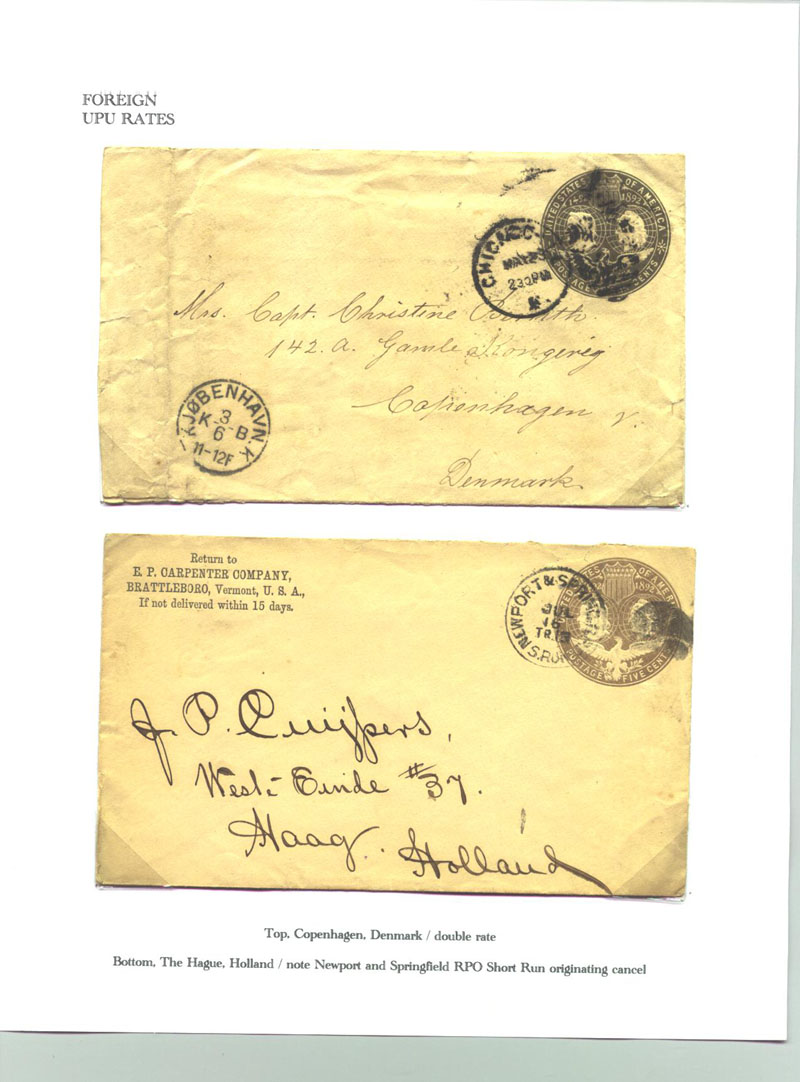 FOREIGN
UPU RATES
UNITED STATES OF AMERICA
1892
POSTAGE CENTS
CHICAGO
MAY
230PM
Mrs. Capt. Christine
142. a. Gamle Kongevej
Copenhagen V.
Denmark.
KJØBENHAVN. K.
3
K B
6
11-12F
Return to
E. P. CARPENTER COMPANY,
BRATTLEBORO, Vermont, U. S. A.,
If not delivered within 15 days.
NEWPORT & SPRI
JUL
16
TR.
S.R.
UNITED STATES OF AMERICA
1892
POSTAGE FIVE CENT
J. P. Cuijpers,
West-Einde #37.
Haag. Holland
Top, Copenhagen, Denmark / double rate
Bottom, The Hague, Holland / note Newport and Springfield RPO Short Run originating cancel